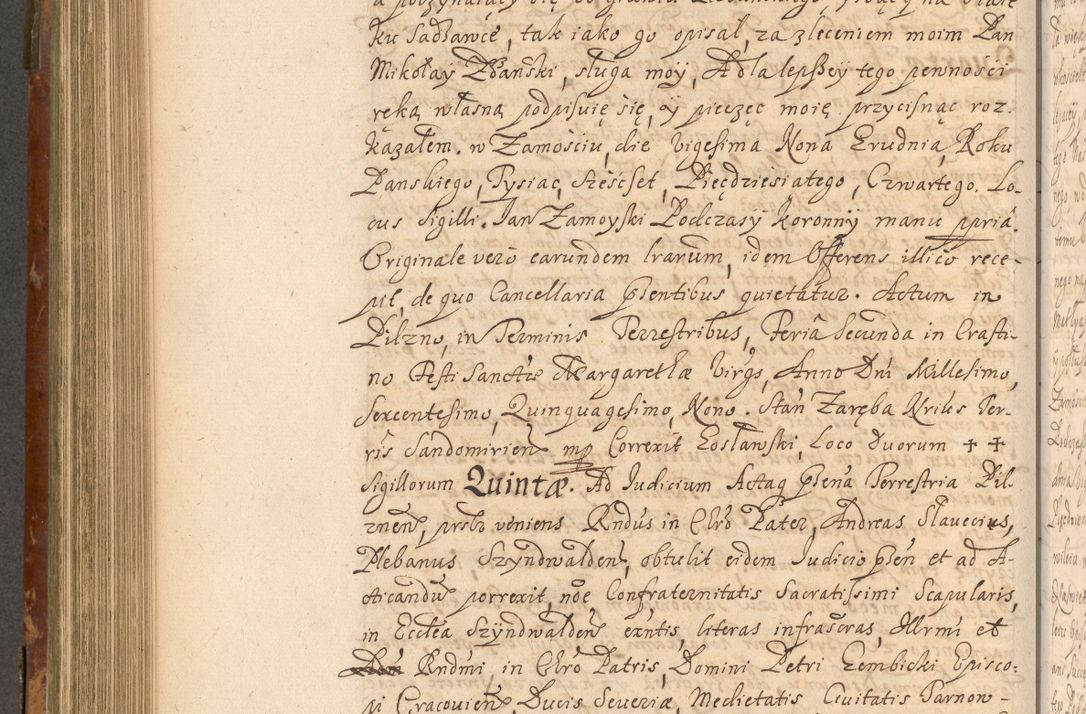 ku Sadławce, tak iako go opisał, za zleceniem moim Pan
Mikołay Zdański, sługa moy, A dla lepszey tego pewnosci
ręką własną podpisuię się, ÿ pieczęc moię przycisnąc roz-
kazałem. w Zamościu, die Vigesima Nona Grudnia, Roku
Panskiego, Tysiąc, Szescset, Pięcdziesiatego, Czwartego. Lo-
cus Sigilli. Jan Zamoyski Podczasÿ Koronnÿ manu ppriã.
Originale verò earundem lrarum, idem Offerens illicò rece-
pit, de quo Cancellaria pñsentibus quietatur. Actum in
Pilzno, in Terminis Terrestribus, Feriâ Secunda in Crasti-
no Festi Sanctæ Margarethæ Virgs, Anno Dni Millesimo,
Sexcentesimo, Quinquagesimo, Nono. Stan Zaręba Nriks Ter-
ris Sandomirien mp Correxit Łosławski, Loco Duorum ✝ ✝
Sigillorum Quintæ. Ad Judicium Actaq pñsena Terrestria Pil-
znen, prsbr veniens Rndus in Chro Pater, Andreas Slavecius,
Plebanus Szÿndwalden, obtulit eidem Judicio pñsen et ad A-
cticandũ porrexit, nõe Confraternitatis Sacratissimi Scapularis,
in Ecclea Szÿndwalden exntis, literas infrascras, Illrmi et
Rndmi in Chro Patris, Domini Petri Gembicki Episco-
pi Cracovien, Ducis Severiæ, Medietatis Civitatis Tarnow-